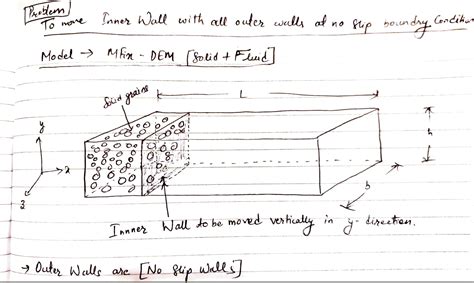 [Problem]
To move Inner Wall with all outer walls at no slip boundry Condition
Model → Mfix - DEM [Solid + Fluid]
Solid grains
L
y
x
z
h
b
Innner Wall to be moved vertically in y- direction.
→ Outer Walls are [No Slip Walls]